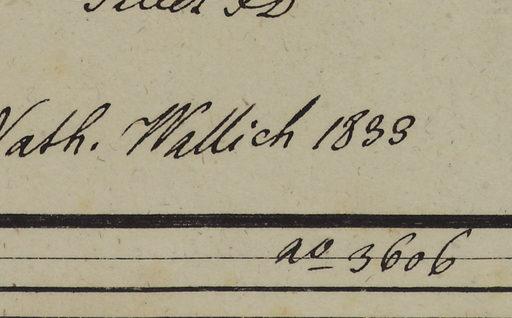 Nath. Wallich 1833
no 3606